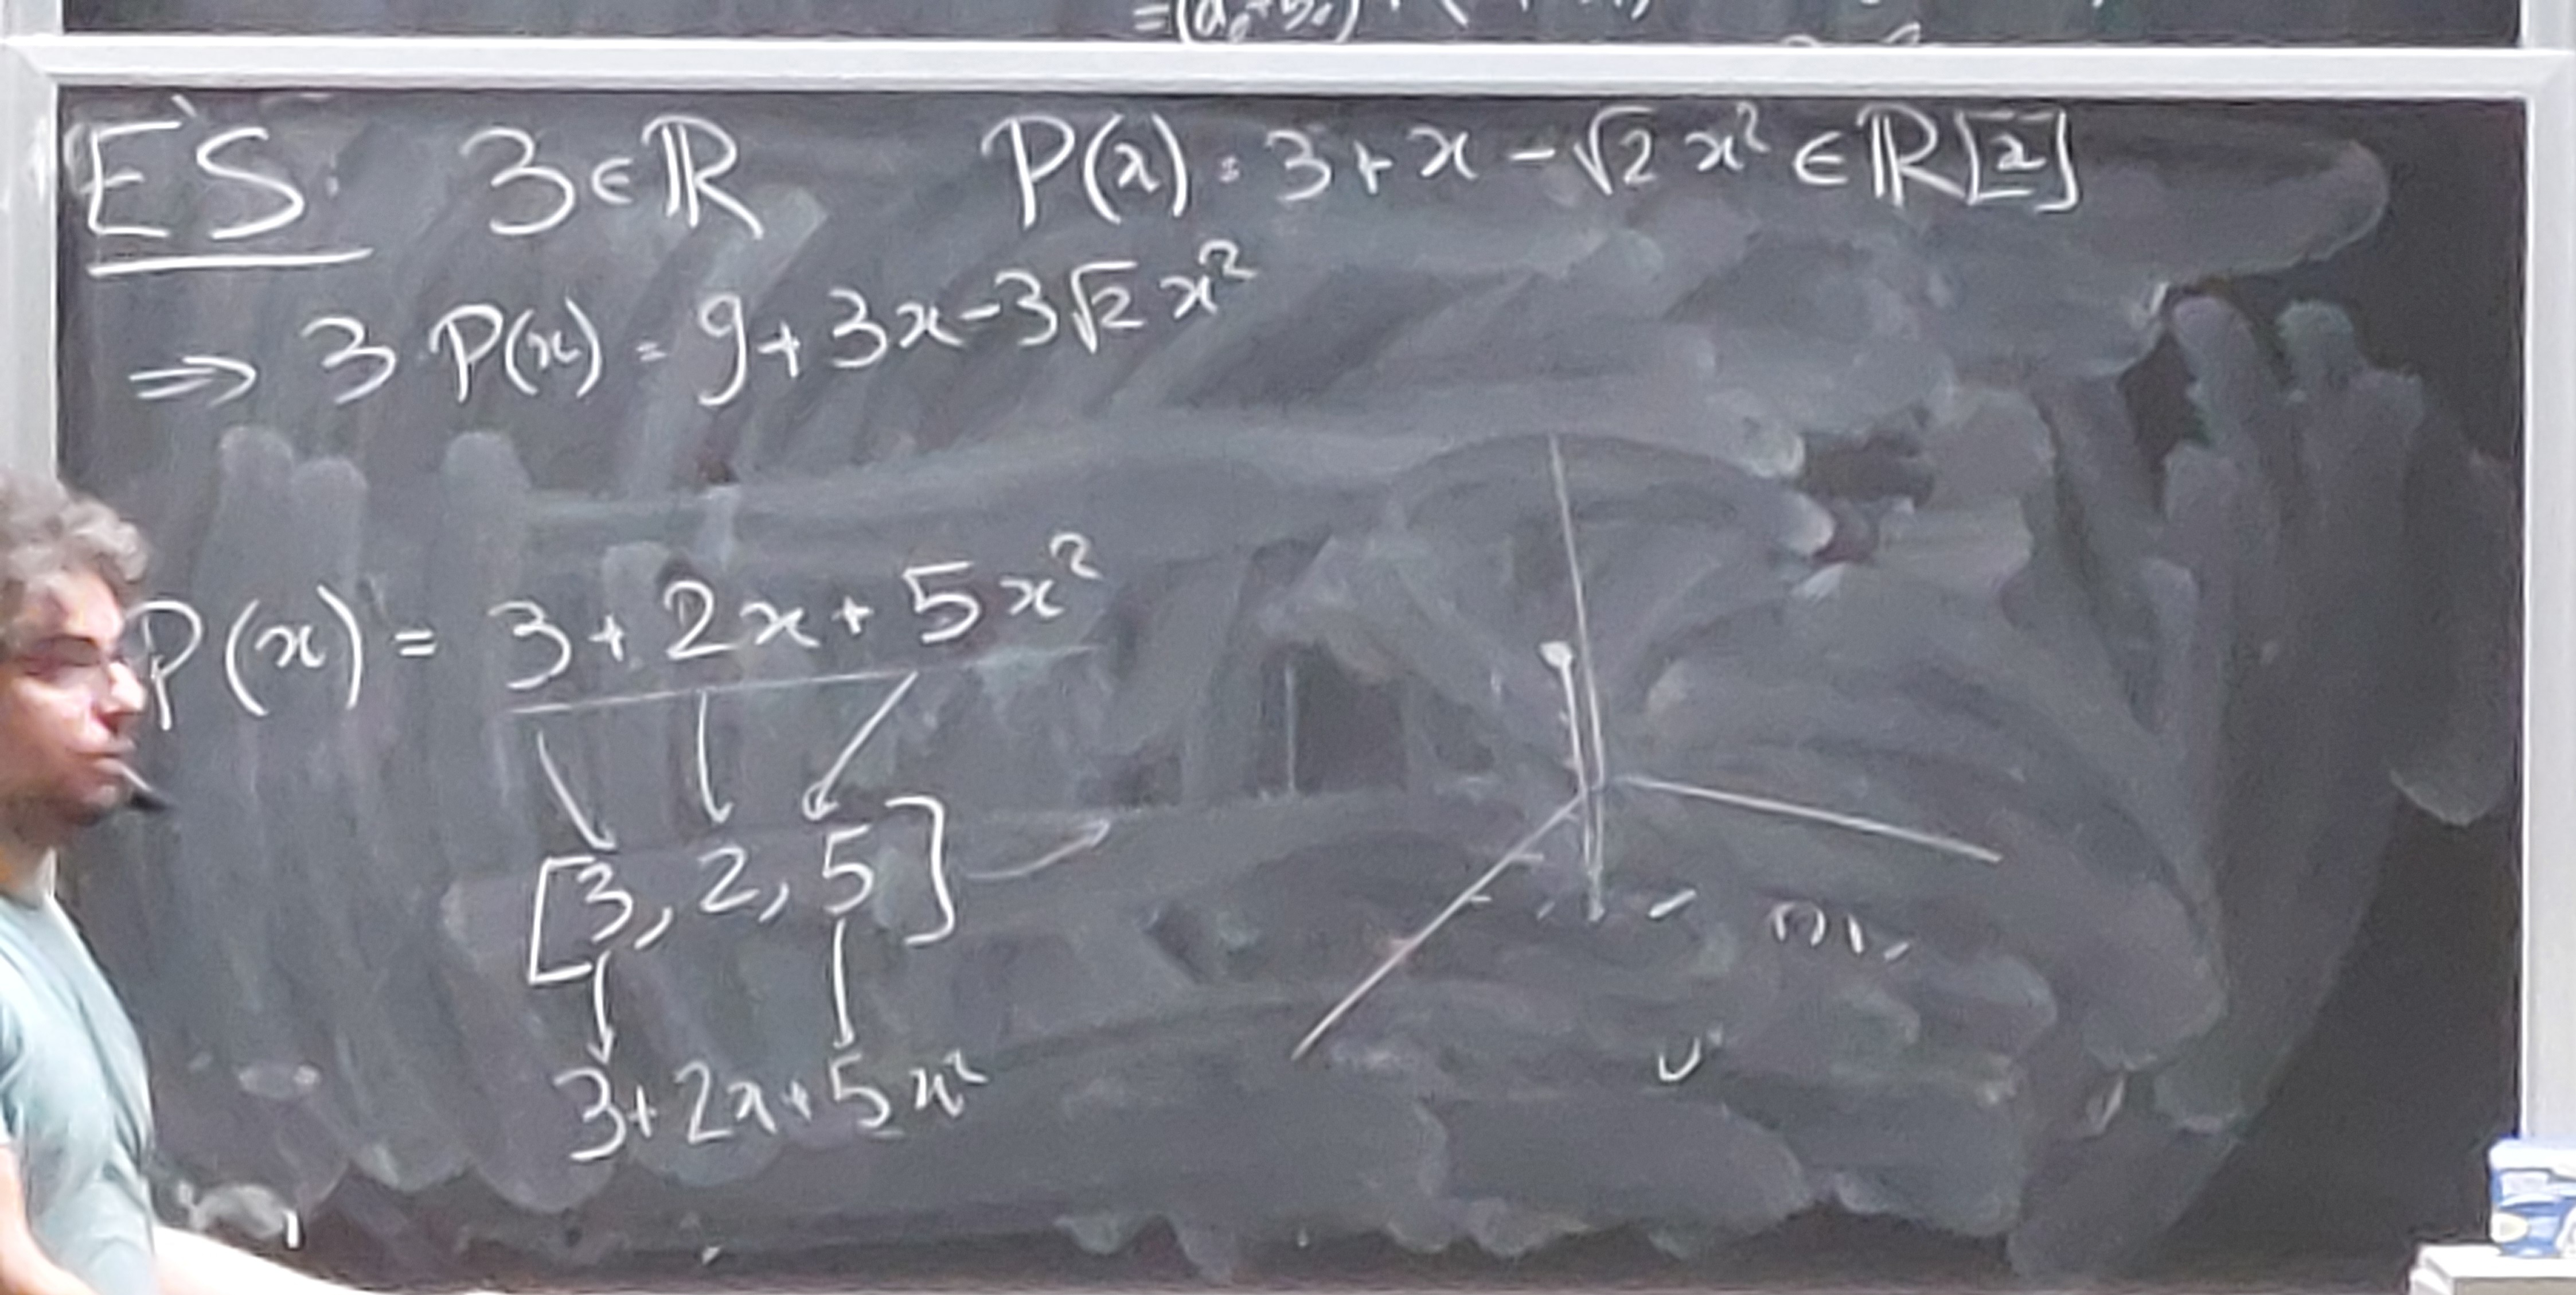 E'S: 3 ∈ ℝ P(x) = 3 + x - √2 x² ∈ ℝ[x]
⇒ 3 P(x) = 9 + 3x - 3√2 x²
P(x) = 3 + 2x + 5x²
[3, 2, 5]
3 + 2x + 5x²